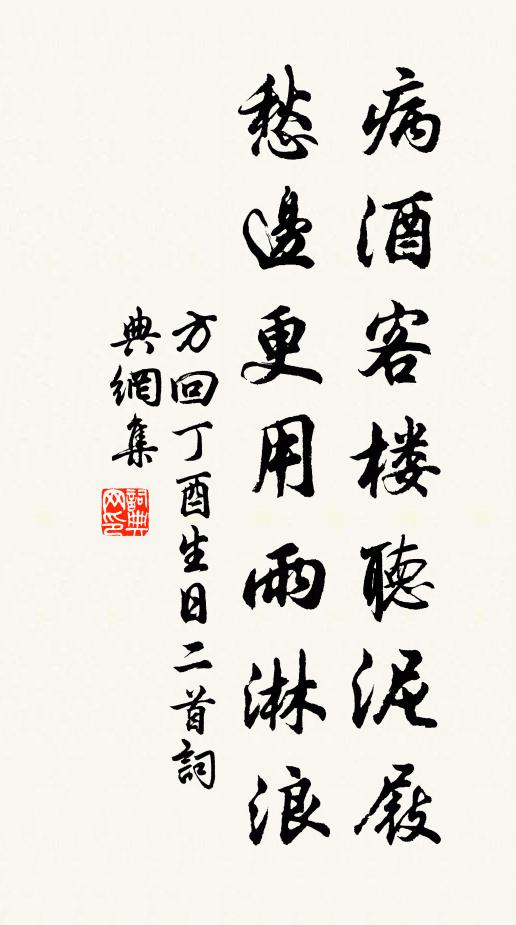 病酒客楼聽泥屐
愁邊更用雨淋浪
方回丁酉生日二首詞
典網集
詞典網印